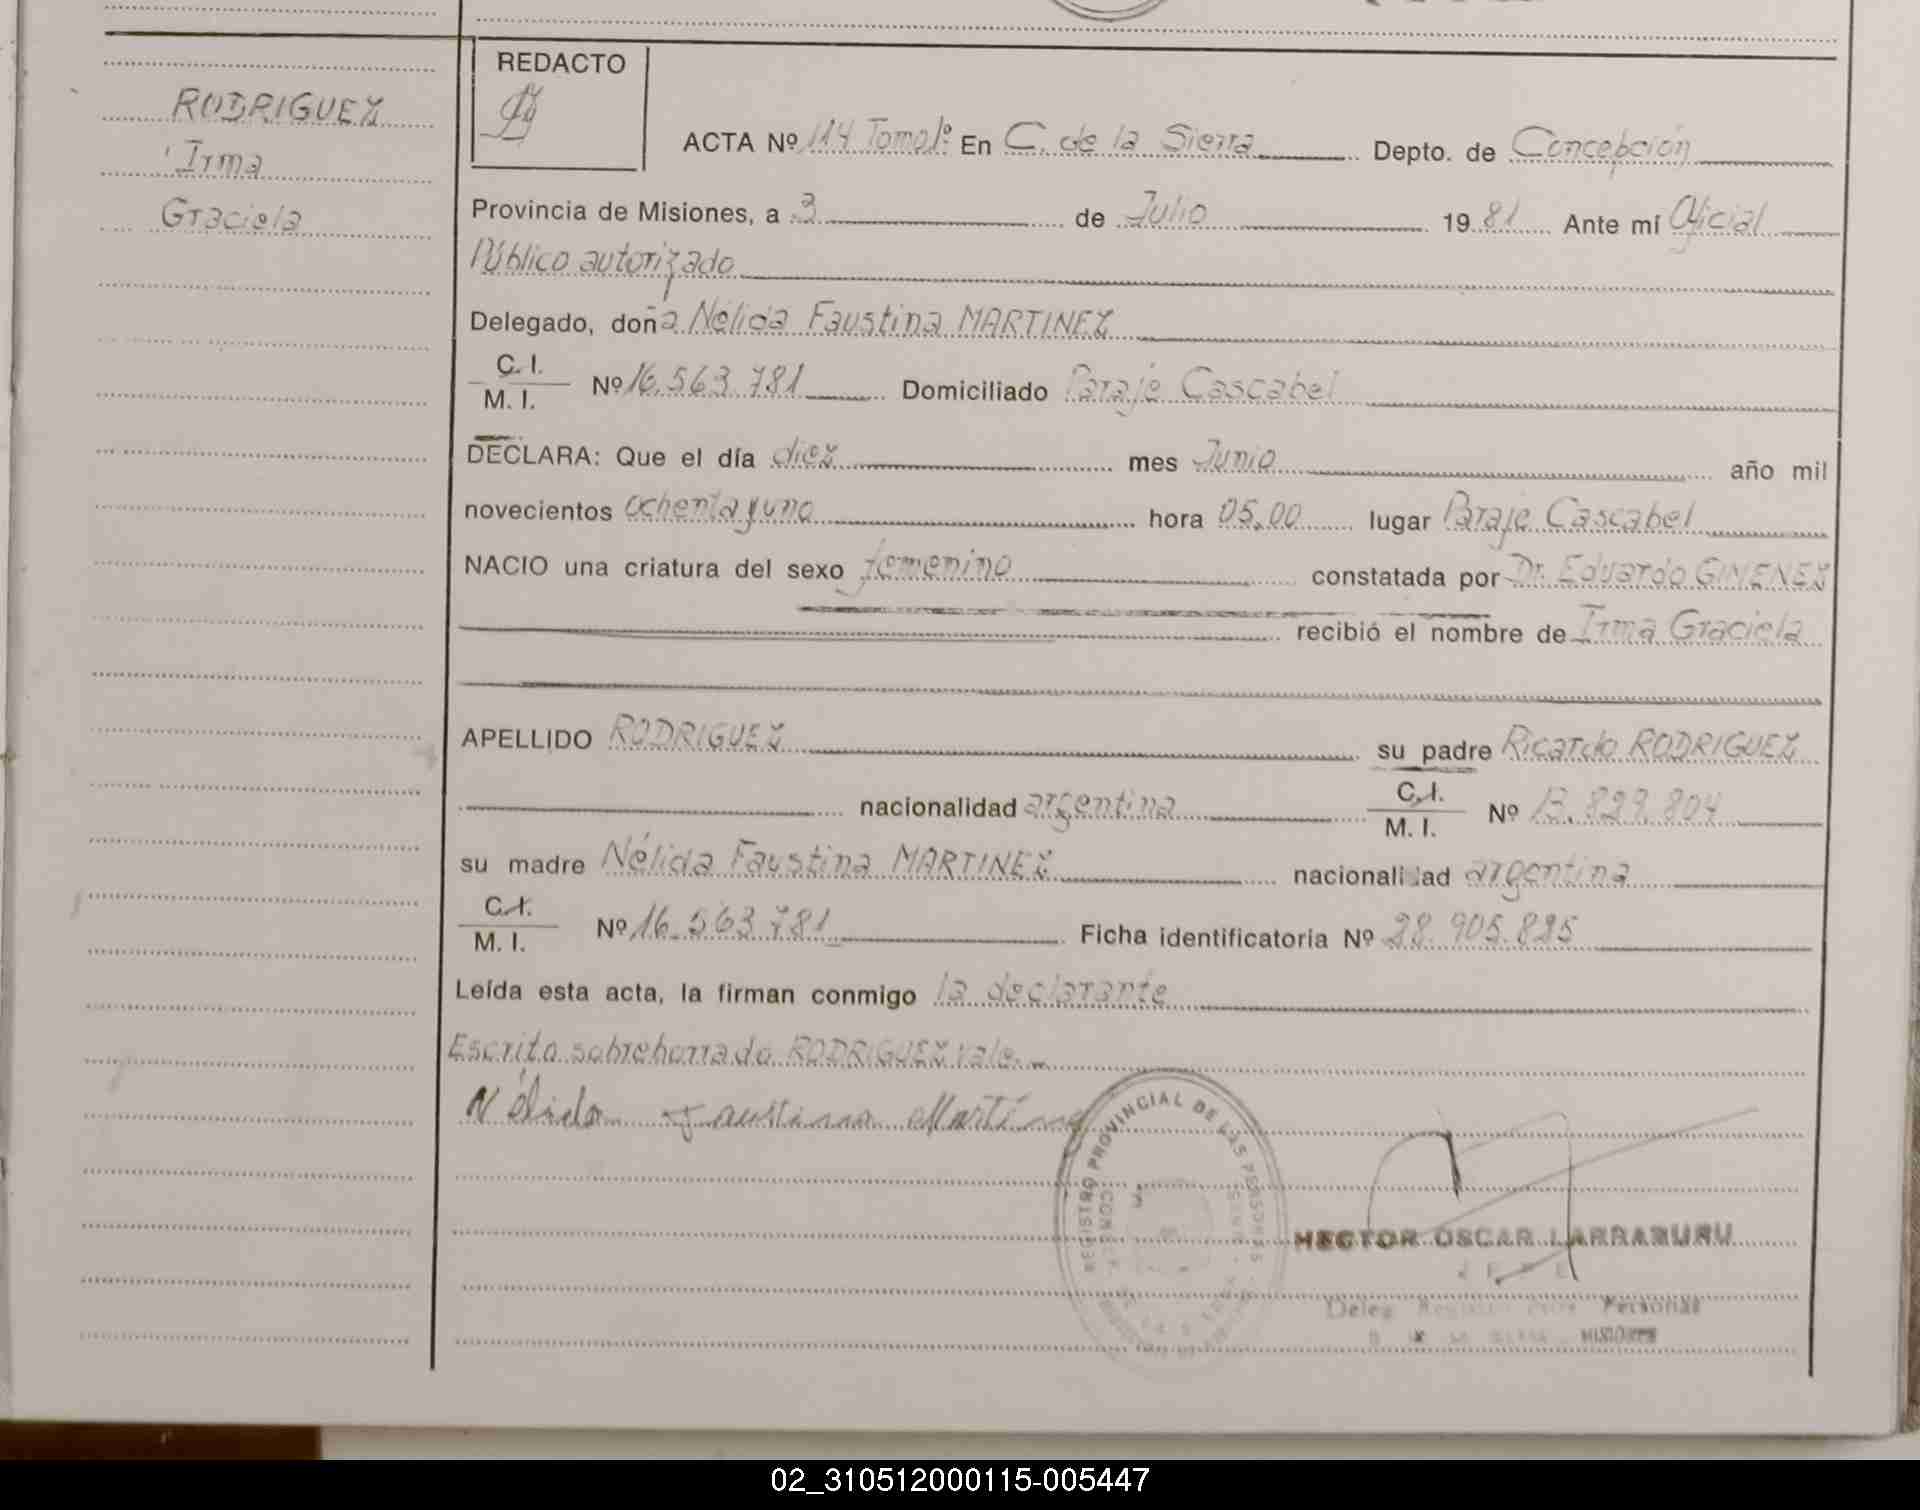 RODRIGUEZ
Irma
Graciela
REDACTO
ACTA Nº 114 Tomo 1º En C. de la Sierra Depto. de Concepción
Provincia de Misiones, a 3 de Julio 1981 Ante mí Oficial
Público autorizado
Delegado, doña Nélida Faustina MARTINEZ
C. I.
M. I. Nº 16.563.781 Domiciliado Paraje Cascabel
DECLARA: Que el día diez mes Junio año mil
novecientos ochenta y uno hora 05,00 lugar Paraje Cascabel
NACIO una criatura del sexo femenino constatada por Dr. Eduardo GIMENEZ
recibió el nombre de Irma Graciela
APELLIDO RODRIGUEZ su padre Ricardo RODRIGUEZ
nacionalidad argentina C. I.
M. I. Nº 13.829.804
su madre Nélida Faustina MARTINEZ nacionalidad argentina
C. I.
M. I. Nº 16.563.781 Ficha identificatoria Nº 28.905.825
Leída esta acta, la firman conmigo la declarante
Escrito sobreborrado RODRIGUEZ vale.
Nélida Faustina Martínez
REGISTRO PROVINCIAL DE LAS PERSONAS
HECTOR OSCAR LARRABURU
JEFE
Deleg. Personas
MISIONES
02_310512000115-005447